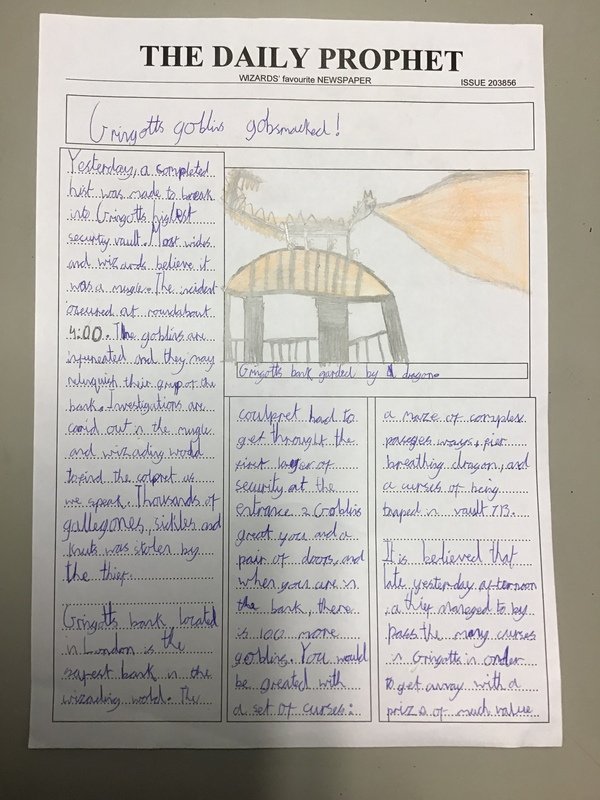 THE DAILY PROPHET
WIZARDS' favourite NEWSPAPER
ISSUE 203856
Gringotts goblins gobsmacked!
Yesterday, a completed
hist was made to break
into Gringotts highest
security vault. Most wides
and wizards believe it
was a mugle. The incident
occured at roundabout
4:00. The goblins are
infureated and they may
relinquish their grip of the
bank. Investigations are
carid out in the mugle
and wizading world
to find the colpret as
we speak. Thousands of
gallegones, sickles and
knuts was stolen by
the thief.
Gringotts bank, located
in London is the
safest bank in the
wizading world. The
Gringotts bank garded by a dragon.
coulpret had to
get throught the
first layer of
security at the
entrance 2 Goblins
great you and a
pair of doors, and
when you are in
the bank, there
is 100 more
goblins. You would
be greated with
a set of curses:
a maze of complex
passeges ways, fier
breathing dragon, and
a curses of being
traped in vault 713.
It is believed that
late yesterday afternoon
a thief managed to by
pass the many curses
in Gringotts in order
to get away with a
prize of much value